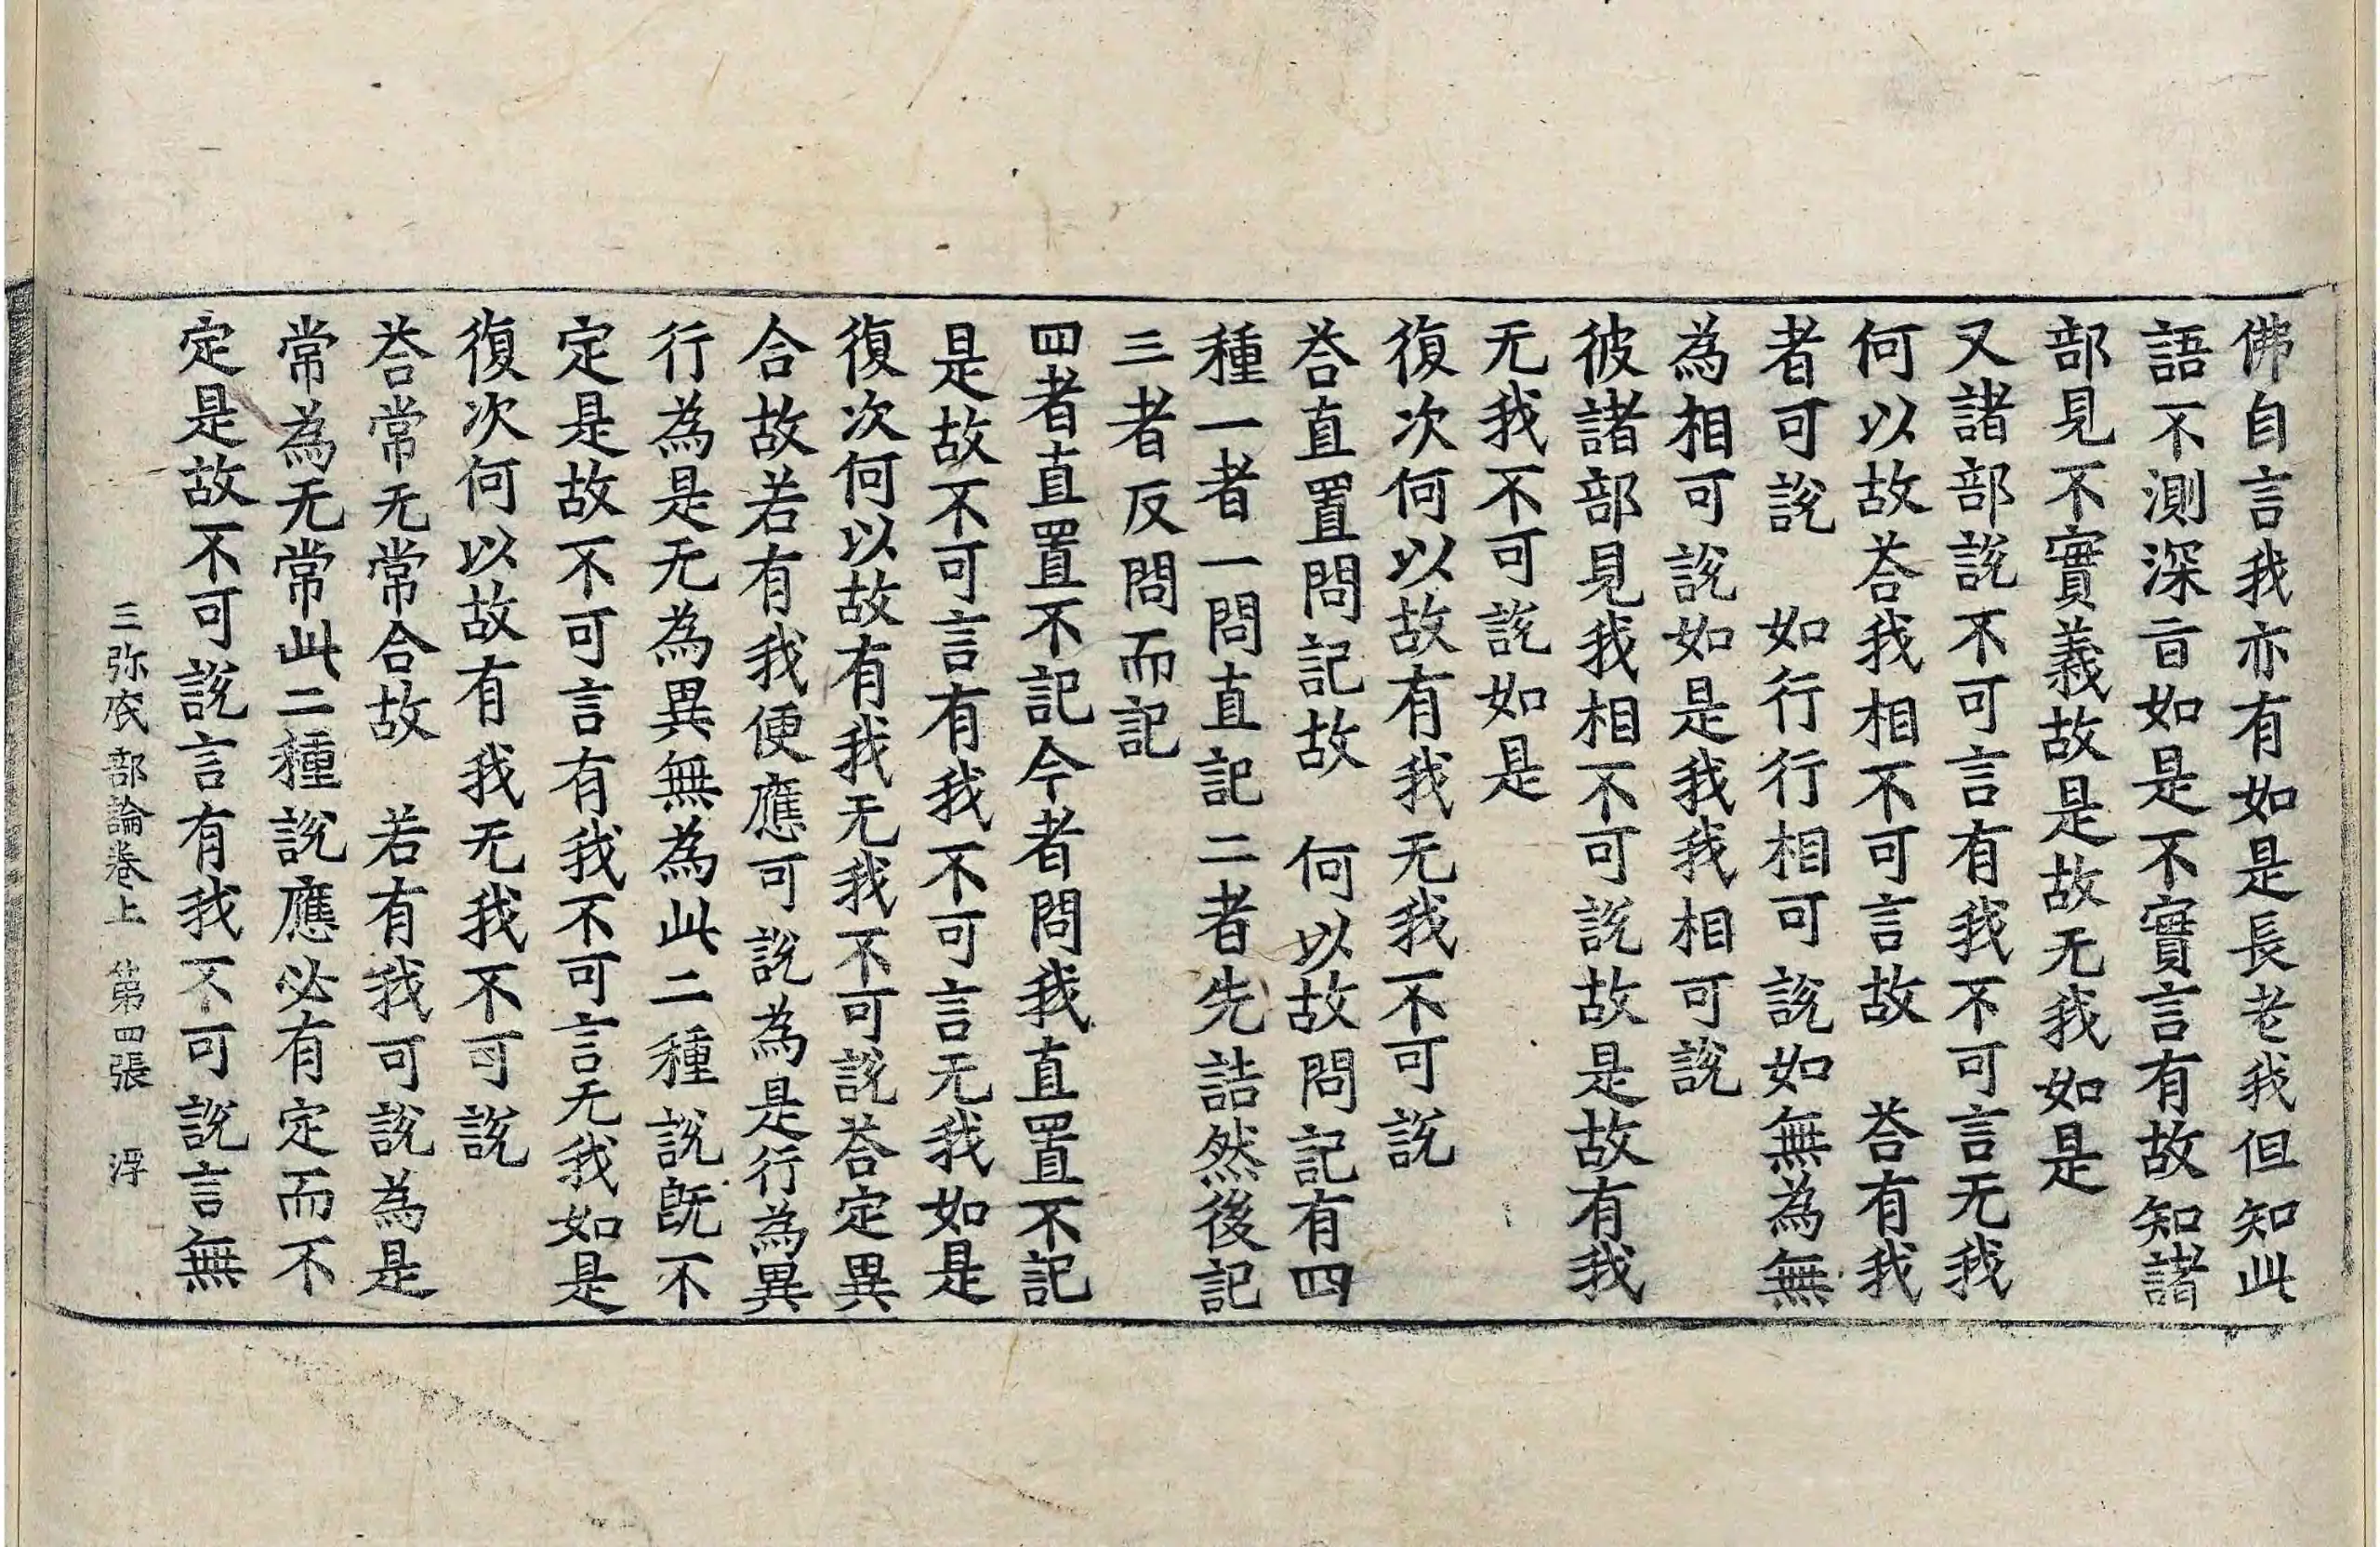 佛自言我亦有如是長老我但知此
語不測深旨如是不實言有故知諸
部見不實義故是故无我如是
又諸部說不可言有我不可言无我
何以故荅我相不可言故　荅有我
者可說　如行行相可說如無為無
為相可說如是我我相可說
彼諸部見我相不可說故是故有我
无我不可說如是
復次何以故有我无我不可說
荅直置問記故　何以故問記有四
種一者一問直記二者先詰然後記
三者反問而記
四者直置不記今者問我直置不記
是故不可言有我不可言无我如是
復次何以故有我无我不可說荅定異
合故若有我便應可說為是行為異
行為是无為異無為此二種說旣不
定是故不可言有我不可言无我如是
復次何以故有我无我不可說
荅常无常合故　若有我可說為是
常為无常此二種說應必有定而不
定是故不可說言有我不可說言無
三弥底部論卷上　第四張　浮